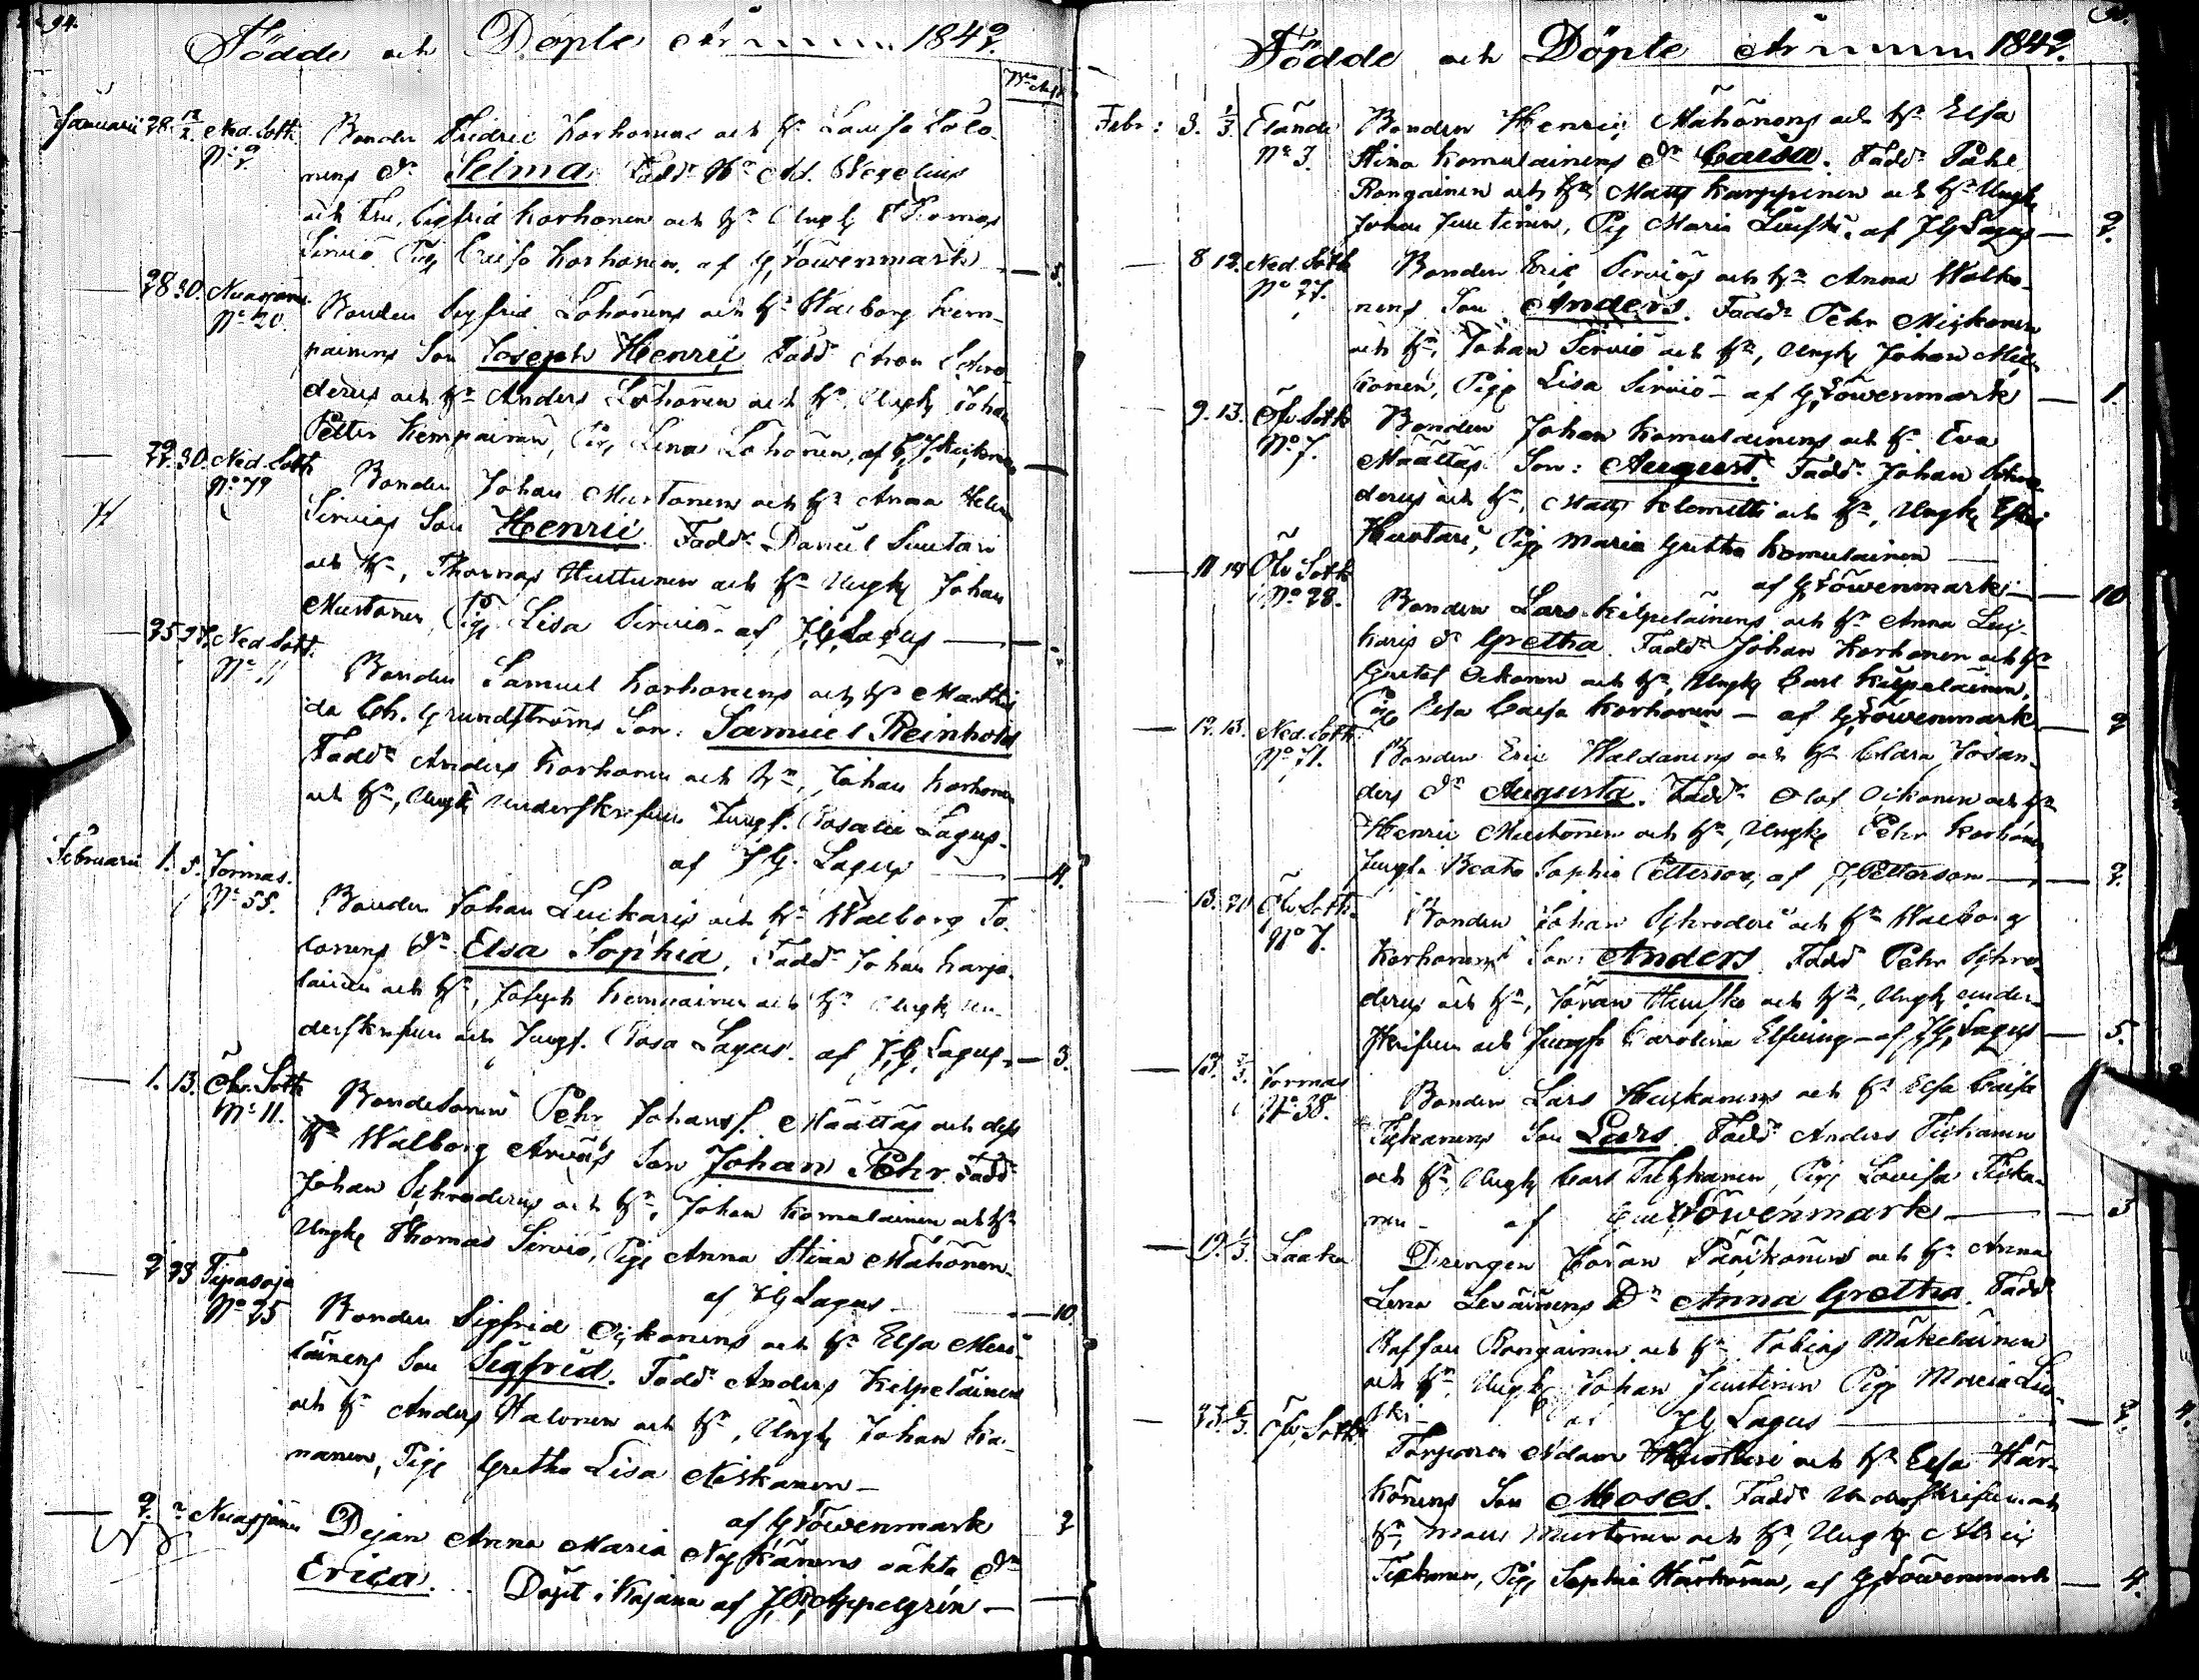 94.
Födde och Döpte År 1842.
Januarii 28. 12/2 Ned. Sotk. N:o 2. Bonden Fridric Korhonens och H:u Lovisa Tolo-
nens D:r Selma. Fadd:r H:r Ad. Wegelius
och Fru, Sigfrid Korhonen och H:u Ungk. Thomas
Sirviö Pig. Caisa Korhonen, af G. Löwenmark — 5.
28 30. Nuasjärvi N:o 20. Bonden Sigfrid Lohönens och H:u Walborg Kem-
painens Son Joseph Henric Fadd Aron Schro-
derus och H:u Anders Lohönen och H:u Ungk Johan
Petter Kempainen, Pig. Lena Lohönen, af
22. 30. Ned Sotk N:o 79 Bonden Johan Mustonen och H:u Anna Helena
Sirviös Son Henric. Fadd:r Daniel Suutari
och H:u, Thomas Huttunen och H:u Ungk Johan
Mustonen, Pig. Lisa Sirviö - af J.G. Lagus —
25 27. Ned Sotk. N:o 11 Bonden Samuel Korhonens och H:u Mathil-
da Ch. Grundströms Son: Samuel Reinhold
Fadd:r Anders Korhonen och H:u, Johan Korhonen
och H:u, Ungk Underskrifven Jungf. Rosalie Lagus.
af J.G. Lagus — 4.
Februarii 1. 5. Jormas. N:o 55. Bonden Johan Luikaris och H:u Walborg To-
lonens D:r Elsa Sophia. Fadd:r Johan Karja-
lainen och H:u, Joseph Kemppainen och H:u Ungk un-
derskrifven och Jungf. Rosa Lagus. af J.G. Lagus — 3.
1. 13. Öfv. Sotk N:o 11. Bondesonen Pehr Johans s. Määttäs och dess
H:u Walborg Arvas Son Johan Pehr. Fadd:r
Johan Schroderus och H:u, Johan Komulainen och H:u
Ungk Thomas Sirviö, Pig. Anna Stina Mähönen.
af J G Lagus — 10.
2 23 Tipasoja N:o 25 Bonden Sigfrid Oikonens och H:u Elsa Meri-
läinens Son Sigfrid. Fadd:r Anders Kilpeläinen
och H:u Anders Halonen och H:u, Ungk Johan Ka-
nanen, Pige Gretha Lisa Niskanen —
af G Löwenmark 2
2. ? Nuasjärvi Pejan Anna Maria Nykänens oäkta D:r
Erica. Döpt i Kajana af J. R. Appelgrén —
Födde och Döpte År 1842.
Febr: 3. 1/3 Elände N:o 3. Bonden Henric Mähönens och H:u Elsa
Stina Komulainens D:r Caisa. Fadd:r Påhl
Rongainen och H:u, Matts Karppinen och H:u Ungk
Johan Juutinen, Pig Maria af J G Lagus — 2.
8 12. Ned. Sotk N:o 27. Bonden Eric Serviös och H:u Anna Walko-
nens Son Anders. Fadd:r Pehr Mickonen
och H:u, Johan Sirviö och H:u, Ungk Johan Mic-
konen, Pige Lisa Sirviö — af G Löwenmark — 1.
9. 13. Öfv Sotk N:o 7. Bonden Johan Komulainens och H:u Eva
Määttäs Son: August. Fadd:r Johan Schro-
derus och H:u, Matts Klemetti och H:u, Ungk
Huotari, Pige Maria Gretha Komulainen —
af G Löwenmark — 10
11 14 Öfv Sotk N:o 28. Bonden Lars Kilpeläinens och H:u Anna Lui-
karis D:r Gretha. Fadd:r Johan Korhonen och H:u
Gustaf Oikonen och H:u, Ungk Carl Kilpeläinen,
Pige Elsa Caisa Korhonen — af G Löwenmark — 2
12. 13. Ned. Sotk N:o 71. Bonden Eric Haldanens och H:u Josan-
ders D:r Augusta. Fadd:r Olof Oikonen och H:u
Henric Mustonen och H:u, Ungk Pehr Korhonen,
Jungf. Beata Sophia Petterson, af J. Petterson — 2.
13. 20 Öfv Sotk. N:o 7. Bonden Johan Schroderi och H:u Walborg
Korhonens Son: Anders. Fadd:r Pehr Schro-
derus och H:u, Göran och H:u, Ungk under-
skrifven och Jungfr Carolina Elfving — af J G Lagus — 5.
13. Jormas N:o 38. Bonden Lars Heiskanens och H:u Elsa Caisa
Tiskanens Son Lars. Fadd:r Anders Tiikanen
och H:u, Ungk Carl Pige Lovisa Tiika-
nen — af Löwenmark — 3
19. Laaka Drengen Göran Pääskönens och H:u Anna
Lena Leväinens D:r Anna Gretha. Fadd:r
Staffan Rongainen och H:u Tobias Mäkeläinen
och H:u, Ungk Johan Juutinen Pige Maria
af J G Lagus — 2.
23. Öfv, Sotk. Torparen Adam Huotari och H:u Elsa Här-
könens Son Moses. Fadd:r Underskrifven och
H:u, Matts Mustonen och H:u, Ungk
Tiikonen, Pige Sophia Härkönen, af G Löwenmark — 4.